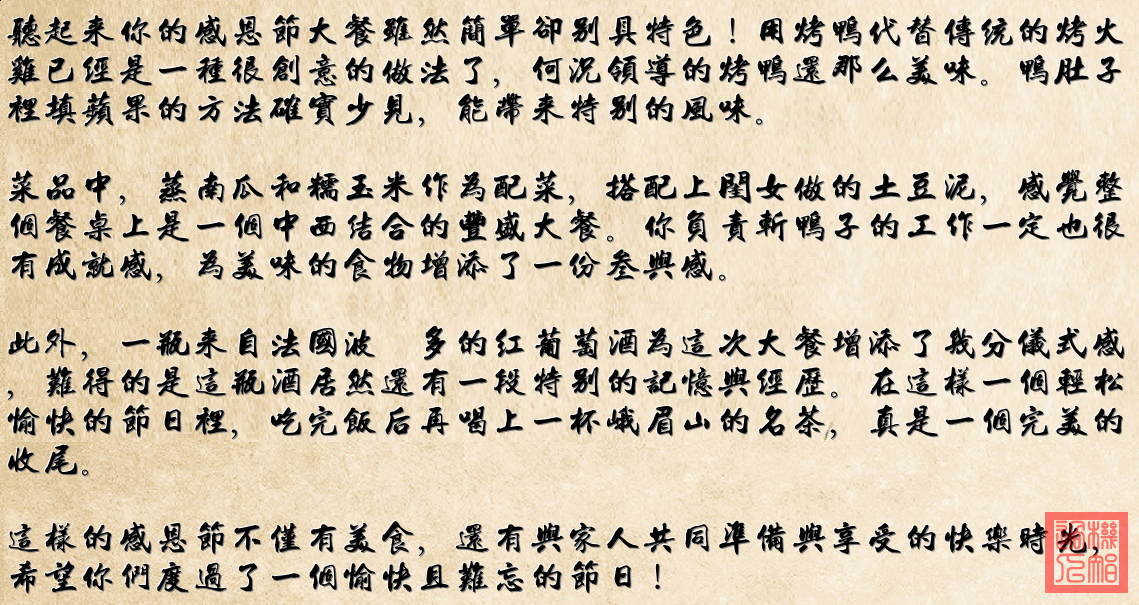 聽起来你的感恩節大餐雖然簡單卻别具特色！用烤鴨代替傳统的烤火
雞已經是一種很創意的做法了，何況領導的烤鴨還那么美味。鴨肚子
裡填蘋果的方法確實少見，能帶来特别的風味。
菜品中，蒸南瓜和糯玉米作為配菜，搭配上閨女做的土豆泥，感覺整
個餐桌上是一個中西结合的豐盛大餐。你負責斬鴨子的工作一定也很
有成就感，為美味的食物增添了一份叁與感。
此外，一瓶来自法國波　多的红葡萄酒為這次大餐增添了幾分儀式感
，難得的是這瓶酒居然還有一段特别的記憶與經歷。在這樣一個輕松
愉快的節日裡，吃完飯后再喝上一杯峨眉山的名茶，真是一個完美的
收尾。
這樣的感恩節不僅有美食，還有與家人共同準備與享受的快樂時光，
希望你們度過了一個愉快且難忘的節日！